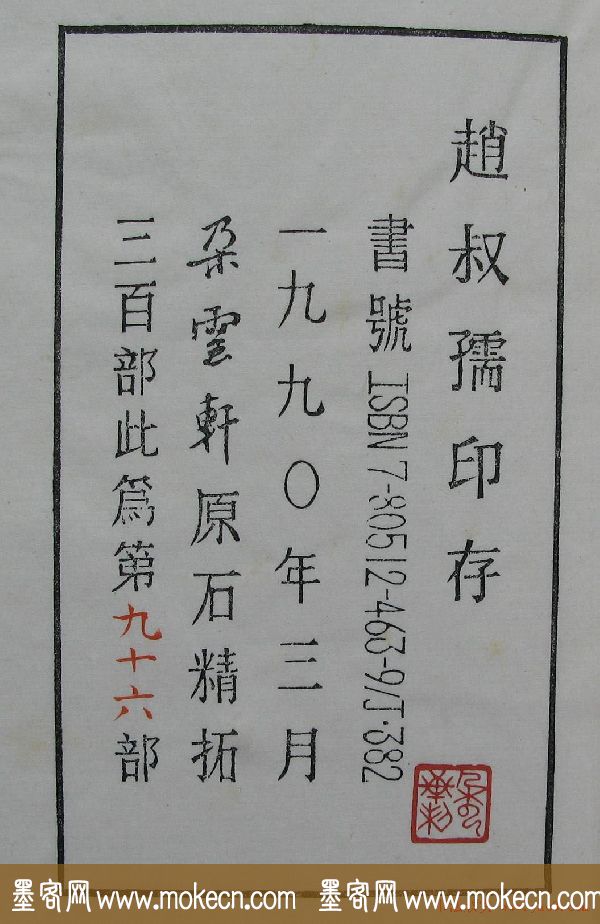 趙叔孺印存
書號 ISBN7-80512-463-9/J·382
一九九〇年三月
朶雲軒原石精拓
三百部此爲第九十六部
墨客网 www.mokecn.com 墨客网 www.mokecn.com